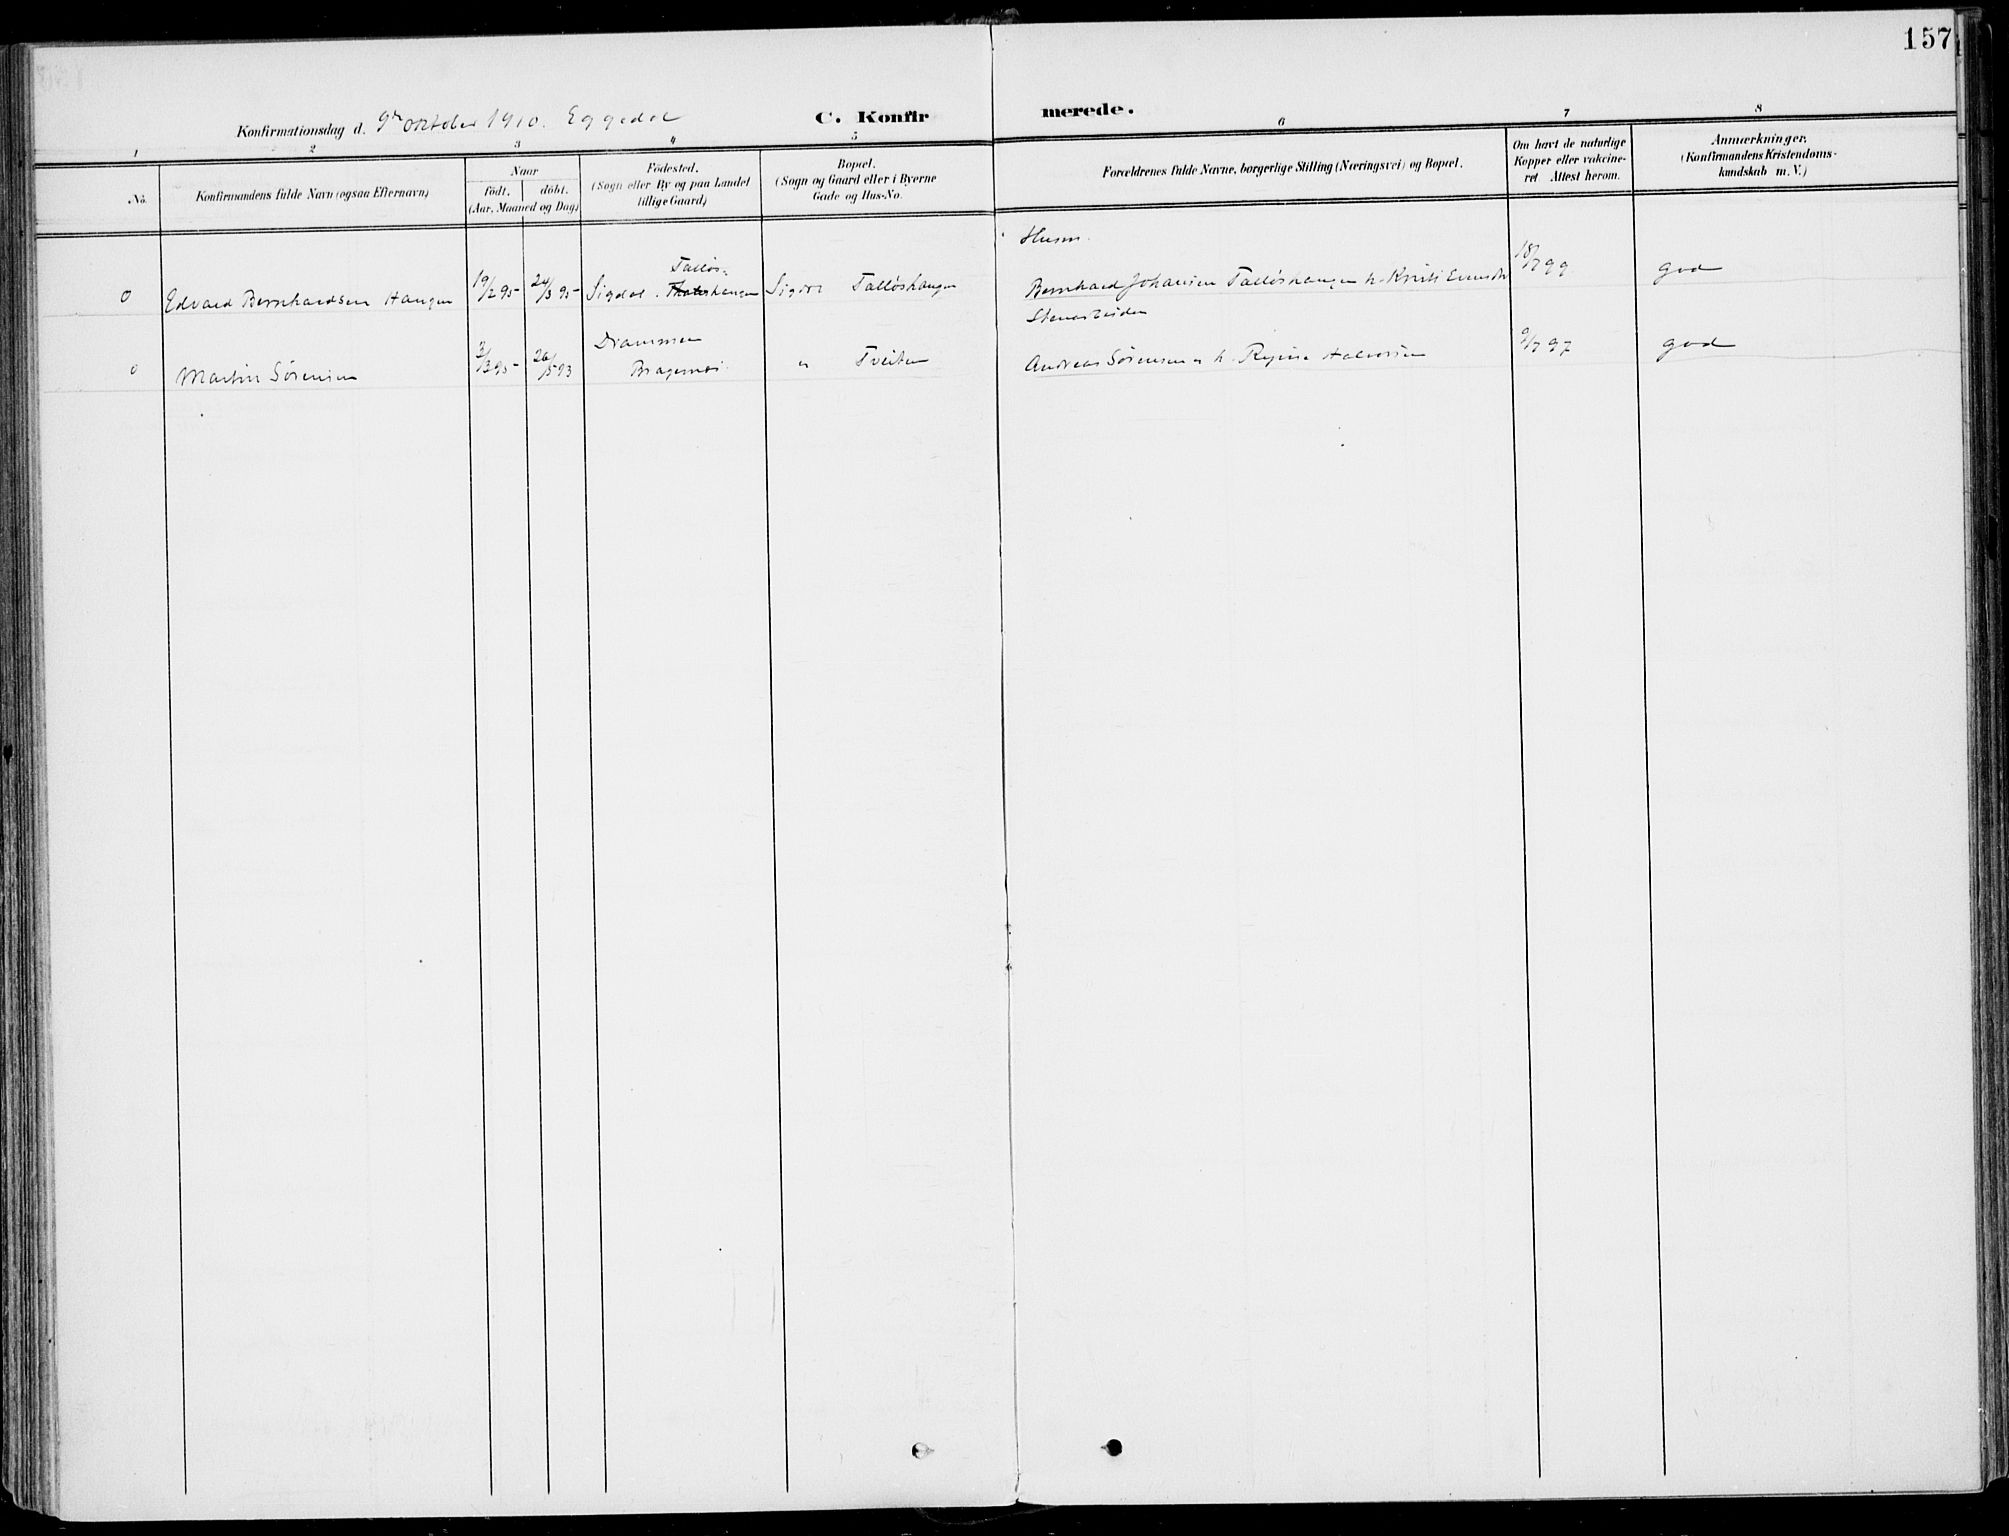 157
Konfirmationsdag d. 9de oktober 1910. Eggedal
C. Konfirmerede.
1 2 3 4 5 6 7 8
No.
Konfirmandens fulde Navn (ogsaa Efternavn)
Naar
födt. döbt.
(Aar, Maaned og Dag)
Födested.
(Sogn eller By og paa Landet
tillige Gaard)
Bopæl.
(Sogn og Gaard eller i Byerne
Gade og Hus-No.
Forældrenes fulde Navne, borgerlige Stilling (Næringsvei) og Bopæl.
Om havt de naturlige
Kopper eller vakcine-
ret Attest herom.
Anmærkninger.
(Konfirmandens Kristendoms-
kundskab m. V.)
Husm.
Talløs-
0 Edvard Bernhardsen Haugen 19/2 95 24/3 95 Sigdal. haugen Sigdal Talløshaugen Bernhard Johansen Talløshaugen h. Kristi Evensdtr 18/7 99 god
Stenarbeider
Drammen
0 Martin Sørensen 3/3 95 26/5 93 Bragernes " Tveiten Andreas Sørensen o. h. Regine Halvorsen 9/7 97 god